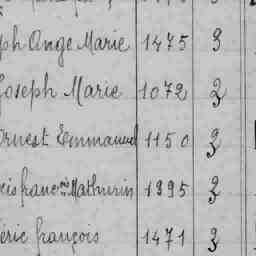 ph Ange Marie 1475 3
Joseph Marie 1072 2
Ernest Emmanuel 1150 3
cis franc ois Mathurin 1395 2
éric françois 1471 3